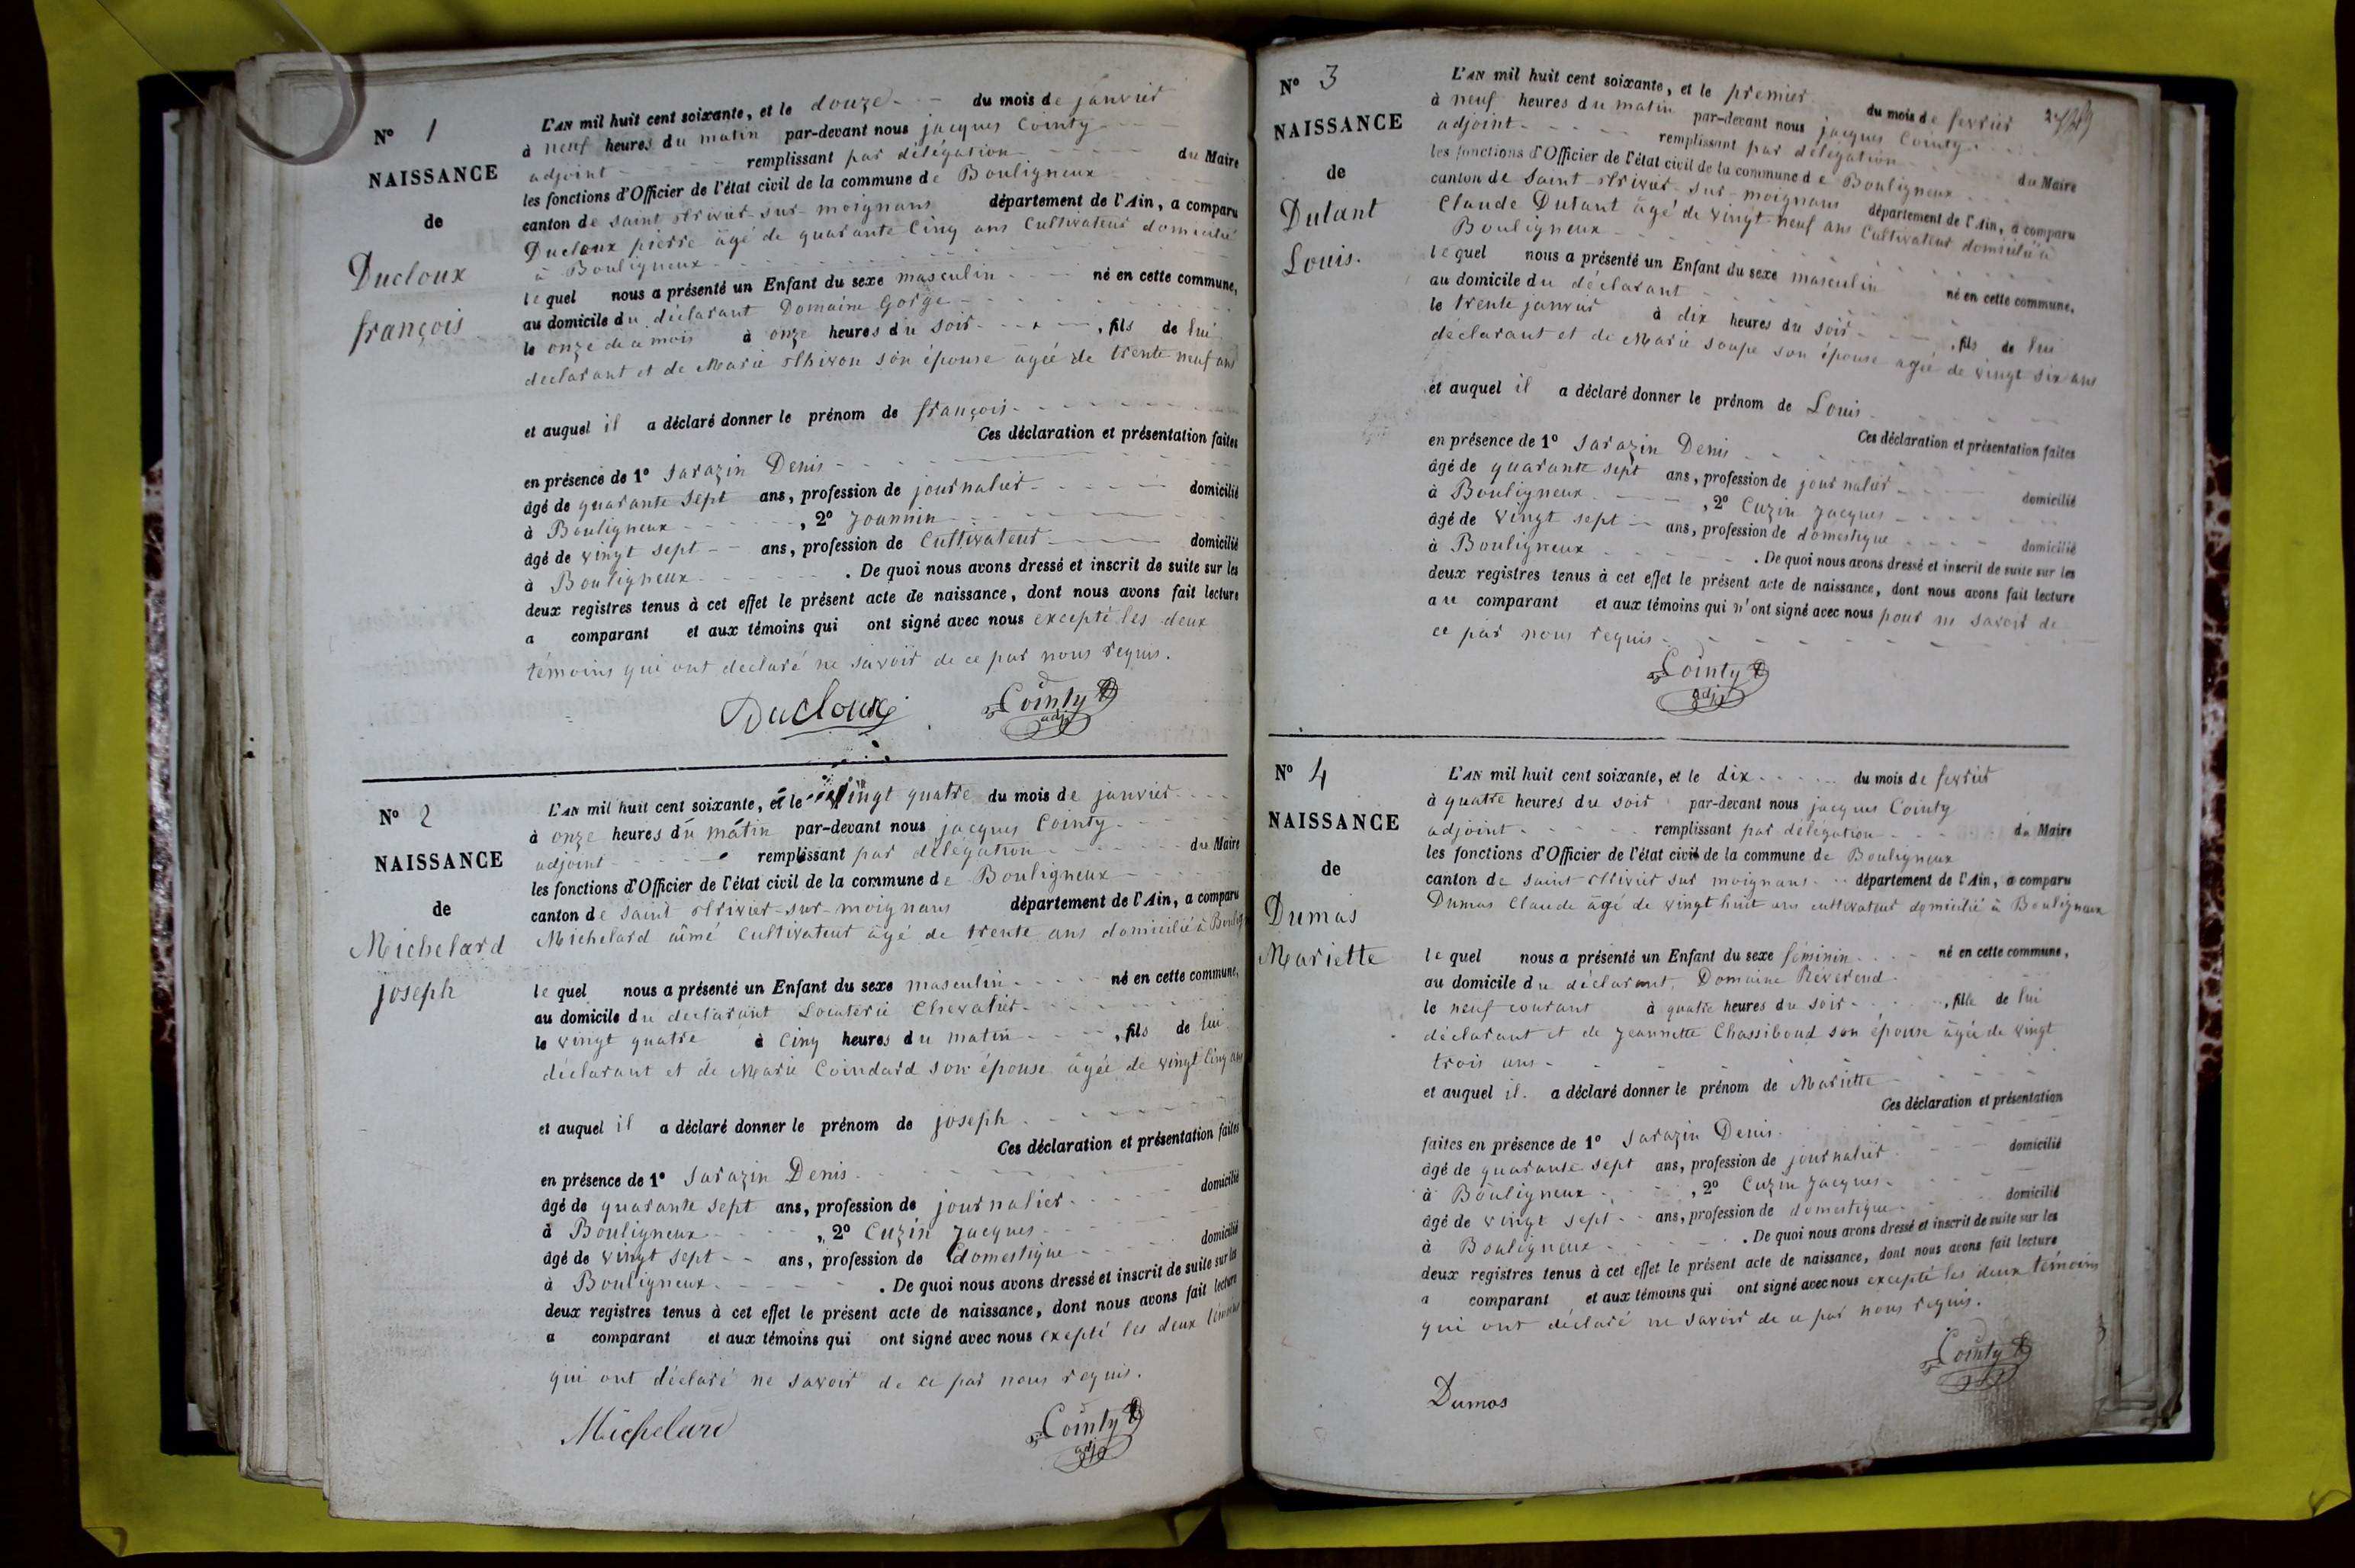 N° 1
NAISSANCE
de
Ducloux
françois
L'AN mil huit cent soixante, et le douze du mois de janvier
à neuf heures du matin par-devant nous jacques Cointy
adjoint remplissant par délégation du Maire
les fonctions d'Officier de l'état civil de la commune de Bouligneux
canton de saint trivier-sur-moignans département de l'Ain, a comparu
Ducloux pierre âgé de quarante Cinq ans Cultivateur domicilié
à Bouligneux
lequel nous a présenté un Enfant du sexe masculin né en cette commune,
au domicile du déclarant Domaine Gorge
le onze de ce mois à onze heures du soir, fils de lui
declarant et de Marie thivon son épouse âgée de trente neuf ans
et auquel il a déclaré donner le prénom de françois
Ces déclaration et présentation faites
en présence de 1° Sarazin Denis
âgé de quarante sept ans, profession de journalier domicilié
à Bouligneux, 2° Joannin
âgé de vingt sept ans, profession de Cultivateur domicilié
à Bouligneux. De quoi nous avons dressé et inscrit de suite sur les
deux registres tenus à cet effet le présent acte de naissance, dont nous avons fait lecture
a comparant et aux témoins qui ont signé avec nous excepté les deux
témoins qui ont declaré ne savoir de ce par nous requis.
Ducloux Cointy
adj
N° 2
NAISSANCE
de
Michelard
joseph
L'AN mil huit cent soixante, et le vingt quatre du mois de janvier
à onze heures du matin par-devant nous jacques Cointy
adjoint remplissant par délégation du Maire
les fonctions d'Officier de l'état civil de la commune de Bouligneux
canton de saint trivier-sur-moignans département de l'Ain, a comparu
Michelard aimé Cultivateur âgé de trente ans domicilié à
lequel nous a présenté un Enfant du sexe masculin né en cette commune,
au domicile du declarant Locaterie Chevalier
le vingt quatre à Cinq heures du matin, fils de lui
déclarant et de Marie Coindard son épouse âgée de vingt Cinq ans
et auquel il a déclaré donner le prénom de joseph
Ces déclaration et présentation faites
en présence de 1° Sarazin Denis
âgé de quarante sept ans, profession de journalier domicilié
à Bouligneux, 2° Cuzin Jacques
âgé de vingt sept ans, profession de domestique domicilié
à Bouligneux. De quoi nous avons dressé et inscrit de suite sur les
deux registres tenus à cet effet le présent acte de naissance, dont nous avons fait lecture
a comparant et aux témoins qui ont signé avec nous exepté les deux témoins
qui ont déclaré ne savoir de ce par nous requis.
Michelard Cointy
adj
N° 3
NAISSANCE
de
Dutant
Louis.
L'AN mil huit cent soixante, et le premier du mois de fevrier
à neuf heures du matin par-devant nous jacques Cointy
adjoint remplissant par délégation du Maire
les fonctions d'Officier de l'état civil de la commune de Bouligneux
canton de Saint-trivier-sur-moignans département de l'Ain, a comparu
Claude Dutant âgé de vingt-neuf ans Cultivateur domicilié à
Bouligneux
lequel nous a présenté un Enfant du sexe masculin né en cette commune,
au domicile du déclarant
le trente janvier à dix heures du soir, fils de lui
declarant et de Marie Soupe son épouse agée de vingt six ans
et auquel il a déclaré donner le prénom de Louis
Ces déclaration et présentation faites
en présence de 1° Sarazin Denis
âgé de quarante sept ans, profession de journalier domicilié
à Bouligneux, 2° Cuzin Jacques
âgé de vingt sept ans, profession de domestique domicilié
à Bouligneux. De quoi nous avons dressé et inscrit de suite sur les
deux registres tenus à cet effet le présent acte de naissance, dont nous avons fait lecture
au comparant et aux témoins qui n'ont signé avec nous pour ne savoir de
ce par nous requis
Cointy
adj
N° 4
NAISSANCE
de
Dumas
Mariette
L'AN mil huit cent soixante, et le dix du mois de fevrier
à quatre heures du soir par-devant nous jacques Cointy
adjoint remplissant par délégation du Maire
les fonctions d'Officier de l'état civil de la commune de Bouligneux
canton de saint trivier sur moignans département de l'Ain, a comparu
Dumas Claude âgé de vingt huit ans cultivateur domicilié à Bouligneux
lequel nous a présenté un Enfant du sexe féminin né en cette commune,
au domicile du déclarant, Domaine Reverend
le neuf courant à quatre heures du soir, fille de lui
déclarant et de jeannette Chassiboud son épouse âgée de vingt
trois ans
et auquel il a déclaré donner le prénom de Mariette
Ces déclaration et présentation
faites en présence de 1° Sarazin Denis
âgé de quarante sept ans, profession de journalier domicilié
à Bouligneux, 2° Cuzin Jacques
âgé de vingt sept ans, profession de domestique domicilié
à Bouligneux. De quoi nous avons dressé et inscrit de suite sur les
deux registres tenus à cet effet le présent acte de naissance, dont nous avons fait lecture
a comparant et aux témoins qui ont signé avec nous excepté les deux témoins
qui ont déclaré ne savoir de ce par nous requis.
Cointy
Dumas